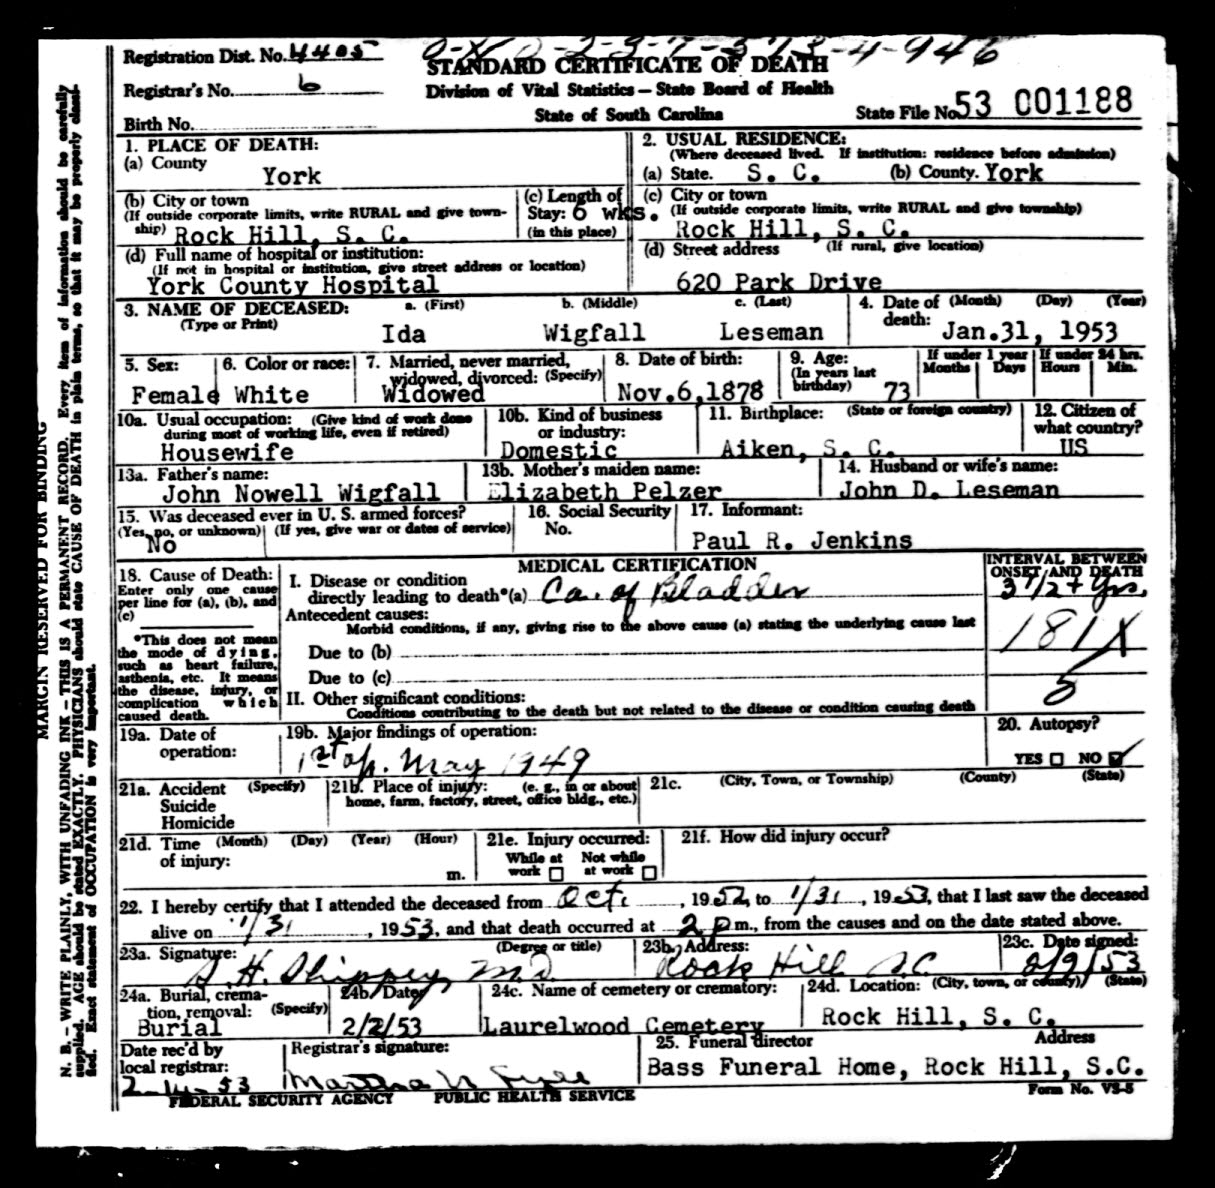 Registration Dist. No. 4405
STANDARD CERTIFICATE OF DEATH
Registrar's No. 6
Division of Vital Statistics — State Board of Health
Birth No.
State of South Carolina
State File No. 53 001188
1. PLACE OF DEATH:
(a) County
York
2. USUAL RESIDENCE:
(Where deceased lived. If institution: residence before admission)
(a) State. S. C. (b) County. York
(b) City or town
(If outside corporate limits, write RURAL and give town-
ship) Rock Hill, S. C.
(c) Length of
Stay: 6 wks.
(in this place)
(c) City or town
(If outside corporate limits, write RURAL and give township)
Rock Hill, S. C.
(d) Full name of hospital or institution:
(If not in hospital or institution, give street address or location)
York County Hospital
(d) Street address (If rural, give location)
620 Park Drive
3. NAME OF DECEASED: a. (First) b. (Middle) c. (Last)
(Type or Print)
Ida Wigfall Leseman
4. Date of (Month) (Day) (Year)
death:
Jan.31, 1953
5. Sex:
Female
6. Color or race:
White
7. Married, never married,
widowed, divorced: (Specify)
Widowed
8. Date of birth:
Nov.6,1878
9. Age:
(In years last
birthday) 73
If under 1 year
Months Days
If under 24 hrs.
Hours Min.
10a. Usual occupation: (Give kind of work done
during most of working life, even if retired)
Housewife
10b. Kind of business
or industry:
Domestic
11. Birthplace: (State or foreign country)
Aiken, S. C.
12. Citizen of
what country?
US
13a. Father's name:
John Nowell Wigfall
13b. Mother's maiden name:
Elizabeth Pelzer
14. Husband or wife's name:
John D. Leseman
15. Was deceased ever in U. S. armed forces?
(Yes, no, or unknown) (If yes, give war or dates of service)
No
16. Social Security
No.
17. Informant:
Paul R. Jenkins
MEDICAL CERTIFICATION
INTERVAL BETWEEN
ONSET AND DEATH
18. Cause of Death:
Enter only one cause
per line for (a), (b), and
(c)
*This does not mean
the mode of dying,
such as heart failure,
asthenia, etc. It means
the disease, injury, or
complication which
caused death.
I. Disease or condition
directly leading to death*(a) Ca. of Bladder
3 1/2 + yrs.
Antecedent causes:
Morbid conditions, if any, giving rise to the above cause (a) stating the underlying cause last
181X
Due to (b)
Due to (c)
5
II. Other significant conditions:
Conditions contributing to the death but not related to the disease or condition causing death
19a. Date of
operation:
19b. Major findings of operation:
1st op. May 1949
20. Autopsy?
YES NO
21a. Accident (Specify)
Suicide
Homicide
21b. Place of injury: (e. g., in or about
home, farm, factory, street, office bldg., etc.)
21c. (City, Town, or Township) (County) (State)
21d. Time (Month) (Day) (Year) (Hour)
of injury: m.
21e. Injury occurred:
While at Not while
work at work
21f. How did injury occur?
22. I hereby certify that I attended the deceased from Oct., 1952, to 1/31, 1953, that I last saw the deceased
alive on 1/31, 1953, and that death occurred at 2 pm., from the causes and on the date stated above.
23a. Signature: (Degree or title)
S. H. Shippey, M.D.
23b. Address:
Rock Hill S.C.
23c. Date signed:
2/9/53
24a. Burial, crema-
tion, removal: (Specify)
Burial
24b. Date
2/2/53
24c. Name of cemetery or crematory:
Laurelwood Cemetery
24d. Location: (City, town, or county) (State)
Rock Hill, S. C.
Date rec'd by
local registrar:
2-14-53
Registrar's signature:
Martha
25. Funeral director Address
Bass Funeral Home, Rock Hill, S.C.
FEDERAL SECURITY AGENCY PUBLIC HEALTH SERVICE
Form No. VS-5
MARGIN RESERVED FOR BINDING
N. B. – WRITE PLAINLY, WITH UNFADING INK – THIS IS A PERMANENT RECORD. Every item of information should be carefully
supplied. AGE should be stated EXACTLY. PHYSICIANS should state CAUSE OF DEATH in plain terms, so that it may be properly classi-
fied. Exact statement of OCCUPATION is very important.